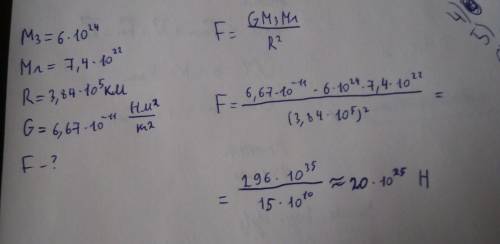 Mз = 6·10²⁴
Mл = 7,4·10²²
R = 3,84·10⁵ км
G = 6,67·10⁻¹¹ Нм²/кг²
F - ?
F = GMзMл / R²
F = 6,67·10⁻¹¹ · 6·10²⁴ · 7,4·10²² / (3,84·10⁵)² =
= 296·10³⁵ / 15·10¹⁰ ≈ 20·10²⁵ Н